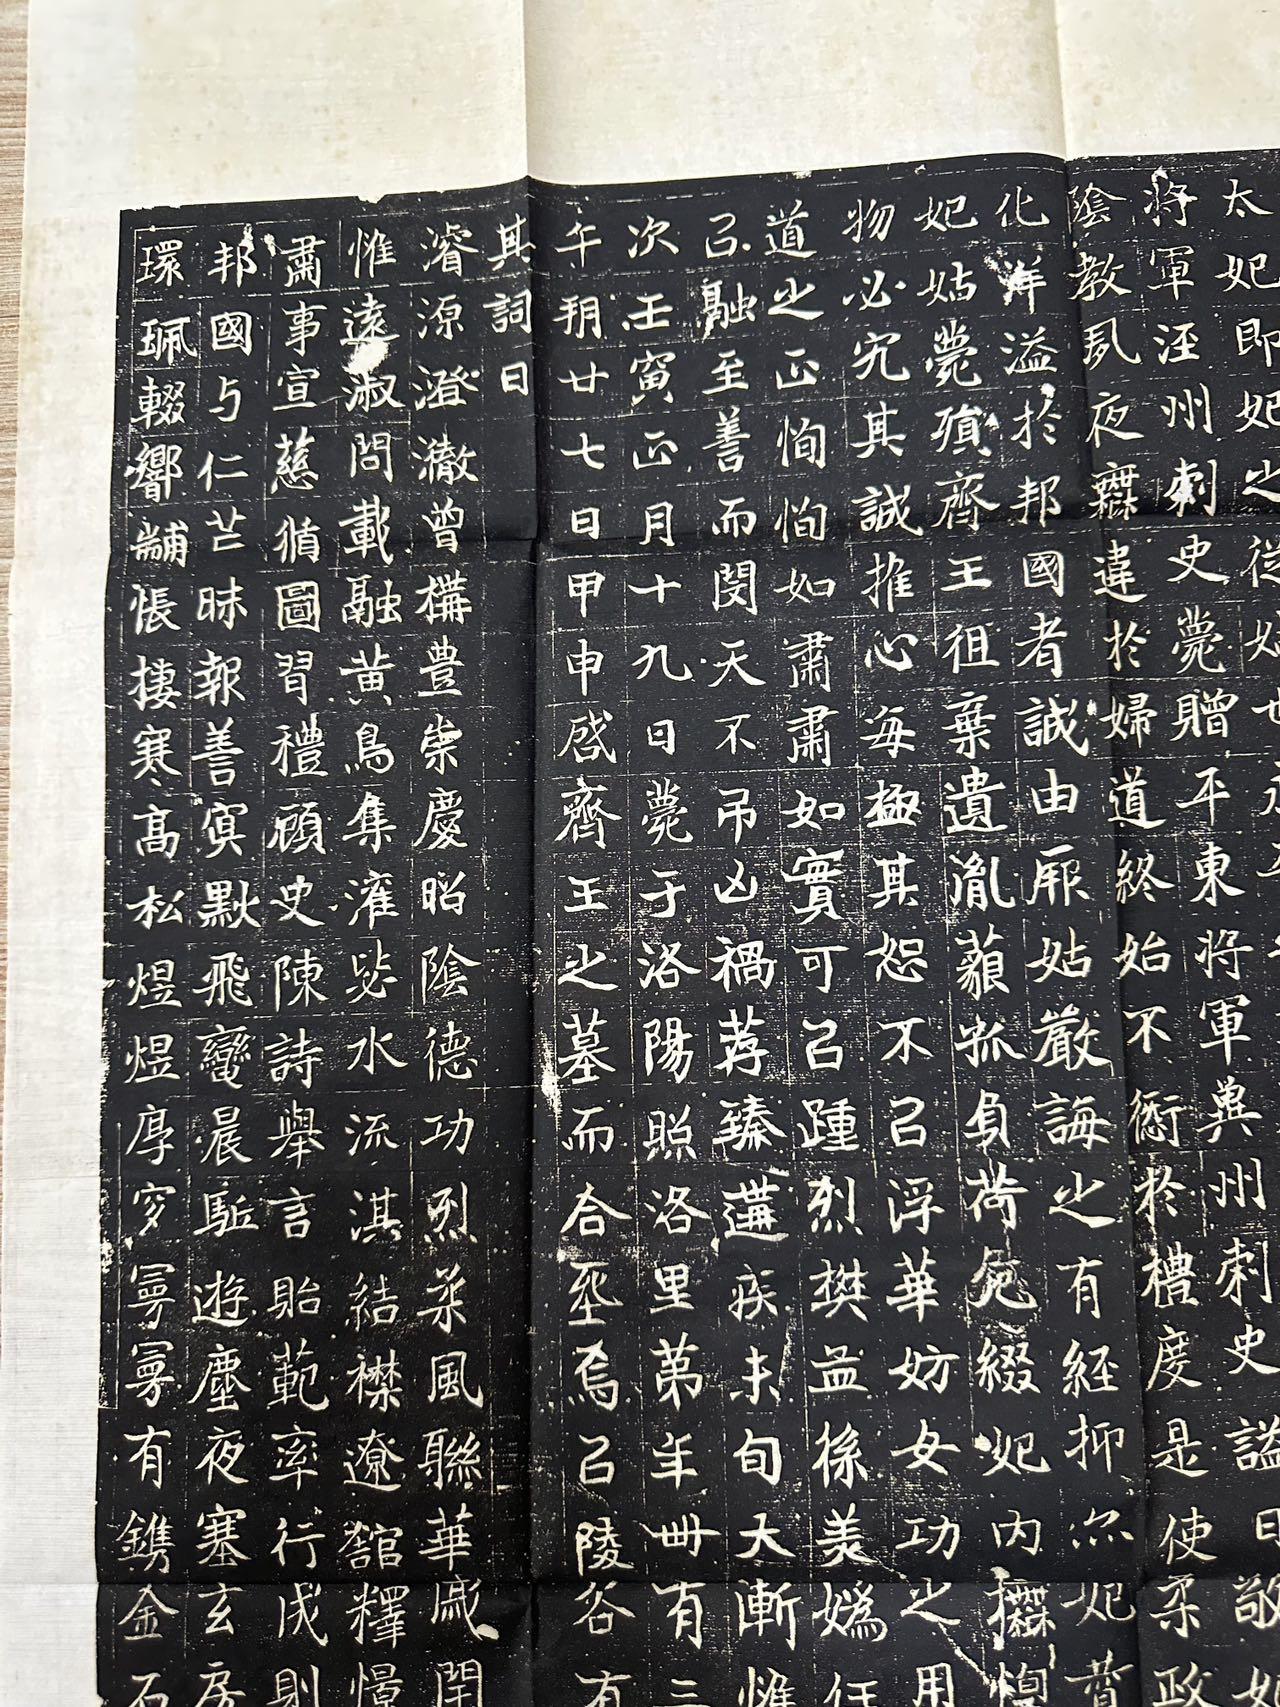 太妃即妃之從
將軍涇州刺史薨贈平東將軍兗州刺史謚曰敬妃
陰教夙夜無違於婦道終始不愆於禮度是使柔政
化洋溢於邦國者誠由厥姑嚴誨之有經抑亦妃昔
妃姑薨殞齊王徂棄遺胤藐孤負荷危綴妃內撫惸
物必究其誠推心每極其恕不㠯浮華妨女功之用
道之正恂恂如肅肅如實可㠯踵烈樊益絛美嬀任
㠯融至善而閔天不吊凶禍荐臻遘疾未旬大漸惟
次壬寅正月十九日薨于洛陽照洛里第年卌有三
午朔廿七日甲申啓齊王之墓而合窆焉㠯陵谷有
其詞曰
濬源澄澈曾構豊崇慶昭陰德功烈柔風聯華戚閈
惟遠淑問載融黄鳥集灌毖水流淇結襟遼舘釋憬
肅事宣慈循圖習禮顧史陳詩舉言貽範率行成則
邦國与仁芒昧報善寘默飛鸞晨駈遊塵夜塞玄房
環珮輟響黼悵棲寒高松煜煜厚穸寥寥有鐫金石